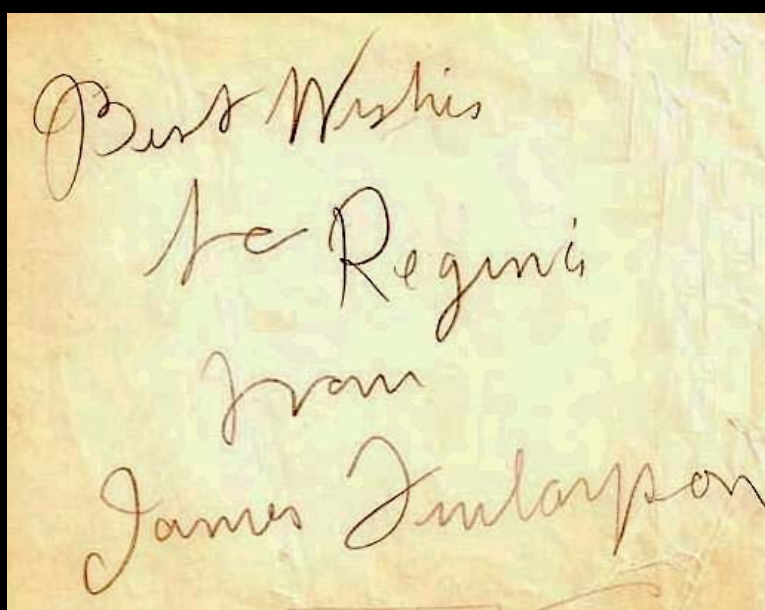 Best Wishes
to Regina
from
James Finlayson